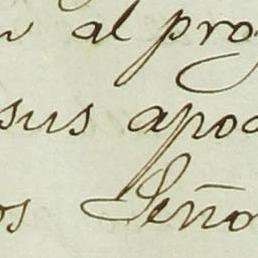 al pro
sus apod
os Seño